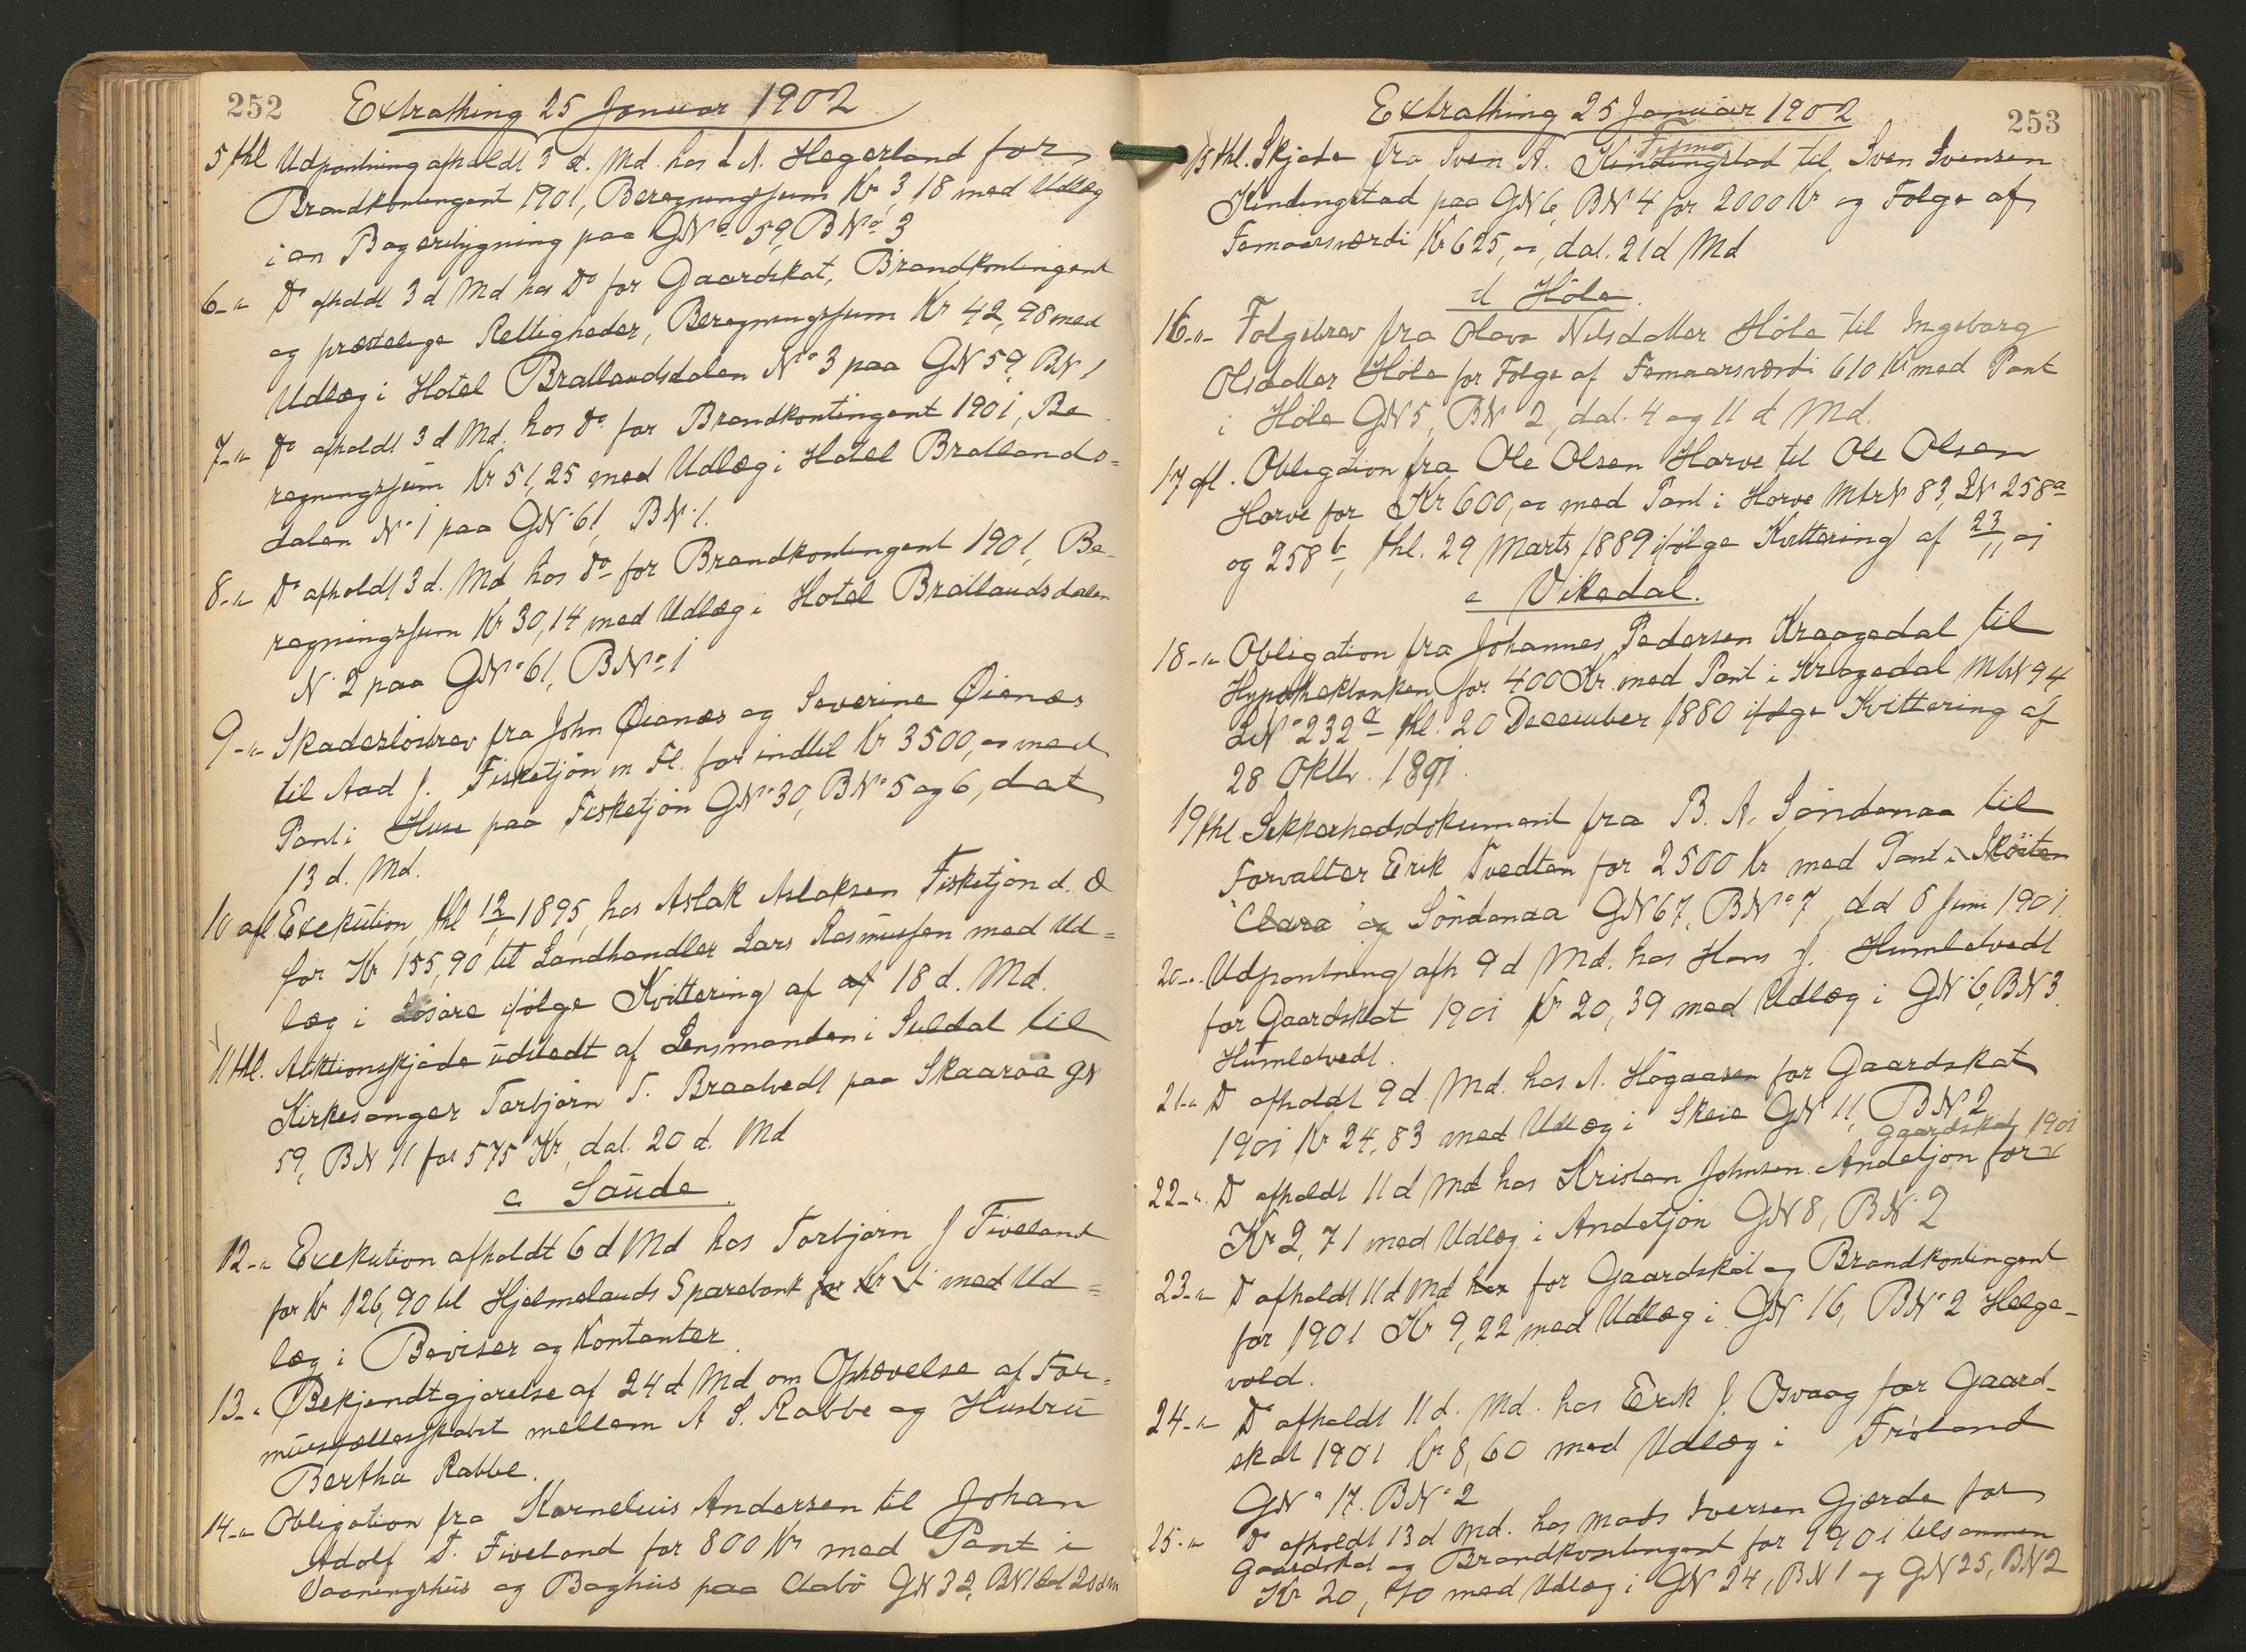 252
Extrathing 25 Januar 1902
5 thl Udpantning afholdt 3 d. Md. hos A. Hegerland for
Brandkontingent 1901, Beregningssum Kr 3,18 med Udlæg
i en Bageribygning paa GNo 59, BNo 3
6-„ Do afholdt 3 d Md hos Do for Gaardskat, Brandkontingent
og præstelige Rettigheder, Beregningssum Kr 42,98 med
Udlæg i Hotel Bratlandsdalen No 3 paa GN 59, BN 1
7-„ Do afholdt 3 d Md. hos Do for Brandkontingent 1901, Be
regningssum Kr 51,25 med Udlæg i Hotel Bratlands=
dalen No 1 paa GN 61, BN 1.
8-„ Do afholdt 3 d. Md hos do for Brandkontingent 1901, Be-
regningssum Kr 30,14 med Udlæg i Hotel Bratlandsdalen
No 2 paa GNo 61, BNo 1
9-„ Skadesløsbrev fra John Øienæs og Severine Øienæs
til Aad J. Fisketjøn m fl. for indtil Kr 3500,00 med
Pant i Huse paa Fisketjøn GNo 30, BNo 5 og 6, dat
13 d. Md.
10 afl Exekution, thl 12/1 1895, hos Aslak Aslaksen Fisketjøn d. æ
for Kr 155,90 til Landhandler Lars Rasmussen med Ud=
læg i Løsøre ifølge Kvittering af af 18 d. Md.
11 thl. Auktionsskjøde udstedt af Lensmanden i Suldal til
Kirkesanger Torbjørn T. Braatvedt paa Skaaraa GN
59, BN 11 for 575 Kr, dat. 20 d. Md
c Saude.
12-„ Exekution afholdt 6 d Md hos Torbjørn J Fiveland
for Kr 126,90 til Hjelmelands Sparebank for Kr med Ud=
læg i Beviser og Kontanter.
13-„ Bekjendtgjørelse af 24 d Md om Ophævelse af For=
muesfællesskabet mellem A S. Rabbe og Hustru
Bertha Rabbe.
14-„ Obligation fra Kornelius Andersen til Johan
Adolf T. Fiveland for 800 Kr med Pant i
Vaaningshus og Baghus paa Aabø GN 32, BN 1 dat 20 d m
253
Extrathing 25 Januar 1902
Fosmo
15 thl. Skjøde fra Sven A. Kindingstad til Sven Svensen
Kindingstad paa GN 6, BN 4 for 2000 Kr og Følge af
Femaarsværdi Kr 625,00, dat. 21 d Md
d Hōle.
16-„ Følgebrev fra Olava Nilsdatter Høle til Ingeborg
Olsdatter Høle for Følge af Femaarsværdi 610 Kr med Pant
i Høle GN 5, BN 2, dat. 4 og 11 d Md.
17 afl. Obligation fra Ole Olsen Harve til Ole Olsen
Harve for Kr 600,00 med Pant i Harve MtrN 83, LN 258a
og 258b, thl. 29 Marts 1889 ifølge Kvittering af 23/11 01
e Vikedal.
18-„ Obligation fra Johannes Pedersen Kraagedal til
Hypothekbanken for 400 Kr. med Pant i Kraagedal MtrN 94
LNo 232a thl. 20 December 1880 ifølge Kvittering af
28 Oktbr. 1891.
19 thl Sikkerhedsdokument fra B. A. Søndenaa til
Forvalter Erik Tvedten for 2500 Kr med Pant i Skøiten
"Clara" og Søndenaa GN 67, BNo 7, dd 8 Juni 1901.
20-„ Udpantning afh 9 d Md. hos Hans J. Humletvedt
for Gaardskat 1901 Kr 20,39 med Udlæg i GN 6, BN 3.
Humletvedt.
21-„ Do afholdt 9 d. Md. hos A. Høgaasen for Gaardskat
1901 Kr 24,83 med Udlæg i Skeie GN 11, BN 2
Gaardskat 1901
22-„ Do afholdt 11 d Md hos Kristen Johnsen Andetjøn for
Kr 2,71 med Udlæg i Andetjøn GN 8, BN 2
23-„ Do afholdt 11 d Md hos for Gaardskat og Brandkontingent
for 1901 Kr 9,22 med Udlæg i GN 16, BNo 2 Helge-
vold.
24-„ Do afholdt 11 d. Md. hos Erik J. Osvaag for Gaard-
skat 1901 Kr 8,60 med Udlæg i Frøland
GNo 17. BNo 2
25-„ Do afholdt 13 d Md. hos Mads Iversen Gjærde for
Gaardskat og Brandkontingent for 1901 tilsammen
Kr 20,70 med Udlæg i GN 24, BN 1 og GN 25, BN 2